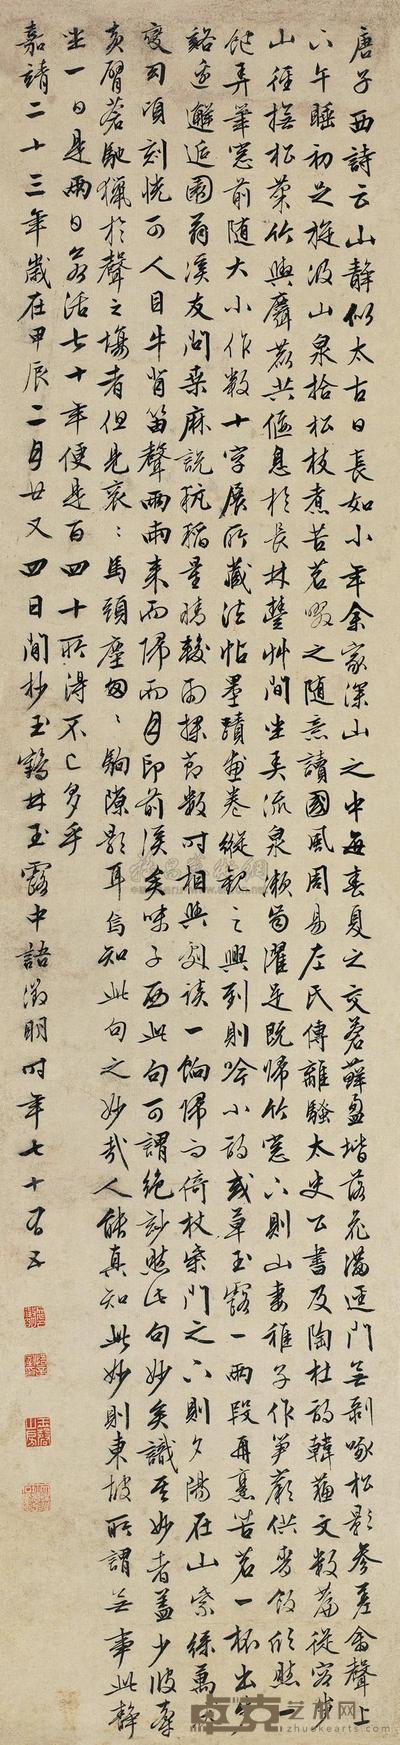 唐子西詩云山靜似太古日長如小年余家深山之中每春夏之交蒼蘚盈堦落花滿逕門無剝啄松影參差禽聲上
下午睡初足旋汲山泉拾松枝煮苦茗啜之隨意讀國風周易左氏傳離騷太史公書及陶杜詩韓蘇文數篇從容步
山徑撫松菜竹與麛鹿共偃息於長林豐艸間坐弄流泉漱齒濯足既歸竹窓下則山妻稚子作筍蕨供麥飯欣然一
飽弄筆窓前隨大小作數十字展所藏法帖墨蹟畫卷縱觀之興到則吟小詩或草玉露一兩段再烹苦茗一杯出步
谿邊邂逅園翁溪友問桑麻說秔稻量晴較雨探節數時相與劇談一餉歸而倚杖柴門之下則夕陽在山紫綠萬狀
變幻頃刻恍可人目牛背笛聲兩兩來而歸而月印前溪矣味子西此句可謂絕妙然此句妙矣識其妙者蓋少彼牽
黃臂蒼馳獵於聲之場者但見衮〻馬頭塵匆〻駒隙影耳烏知此句之妙哉人能真知此妙則東坡所謂無事此靜
坐一日是兩日若活七十年便是百四十所得不已多乎
嘉靖二十三年歲在甲辰二月廿又四日閒抄玉鶴林玉露中語徵明時年七十有五
卓克艺术网
zhuokearts.com